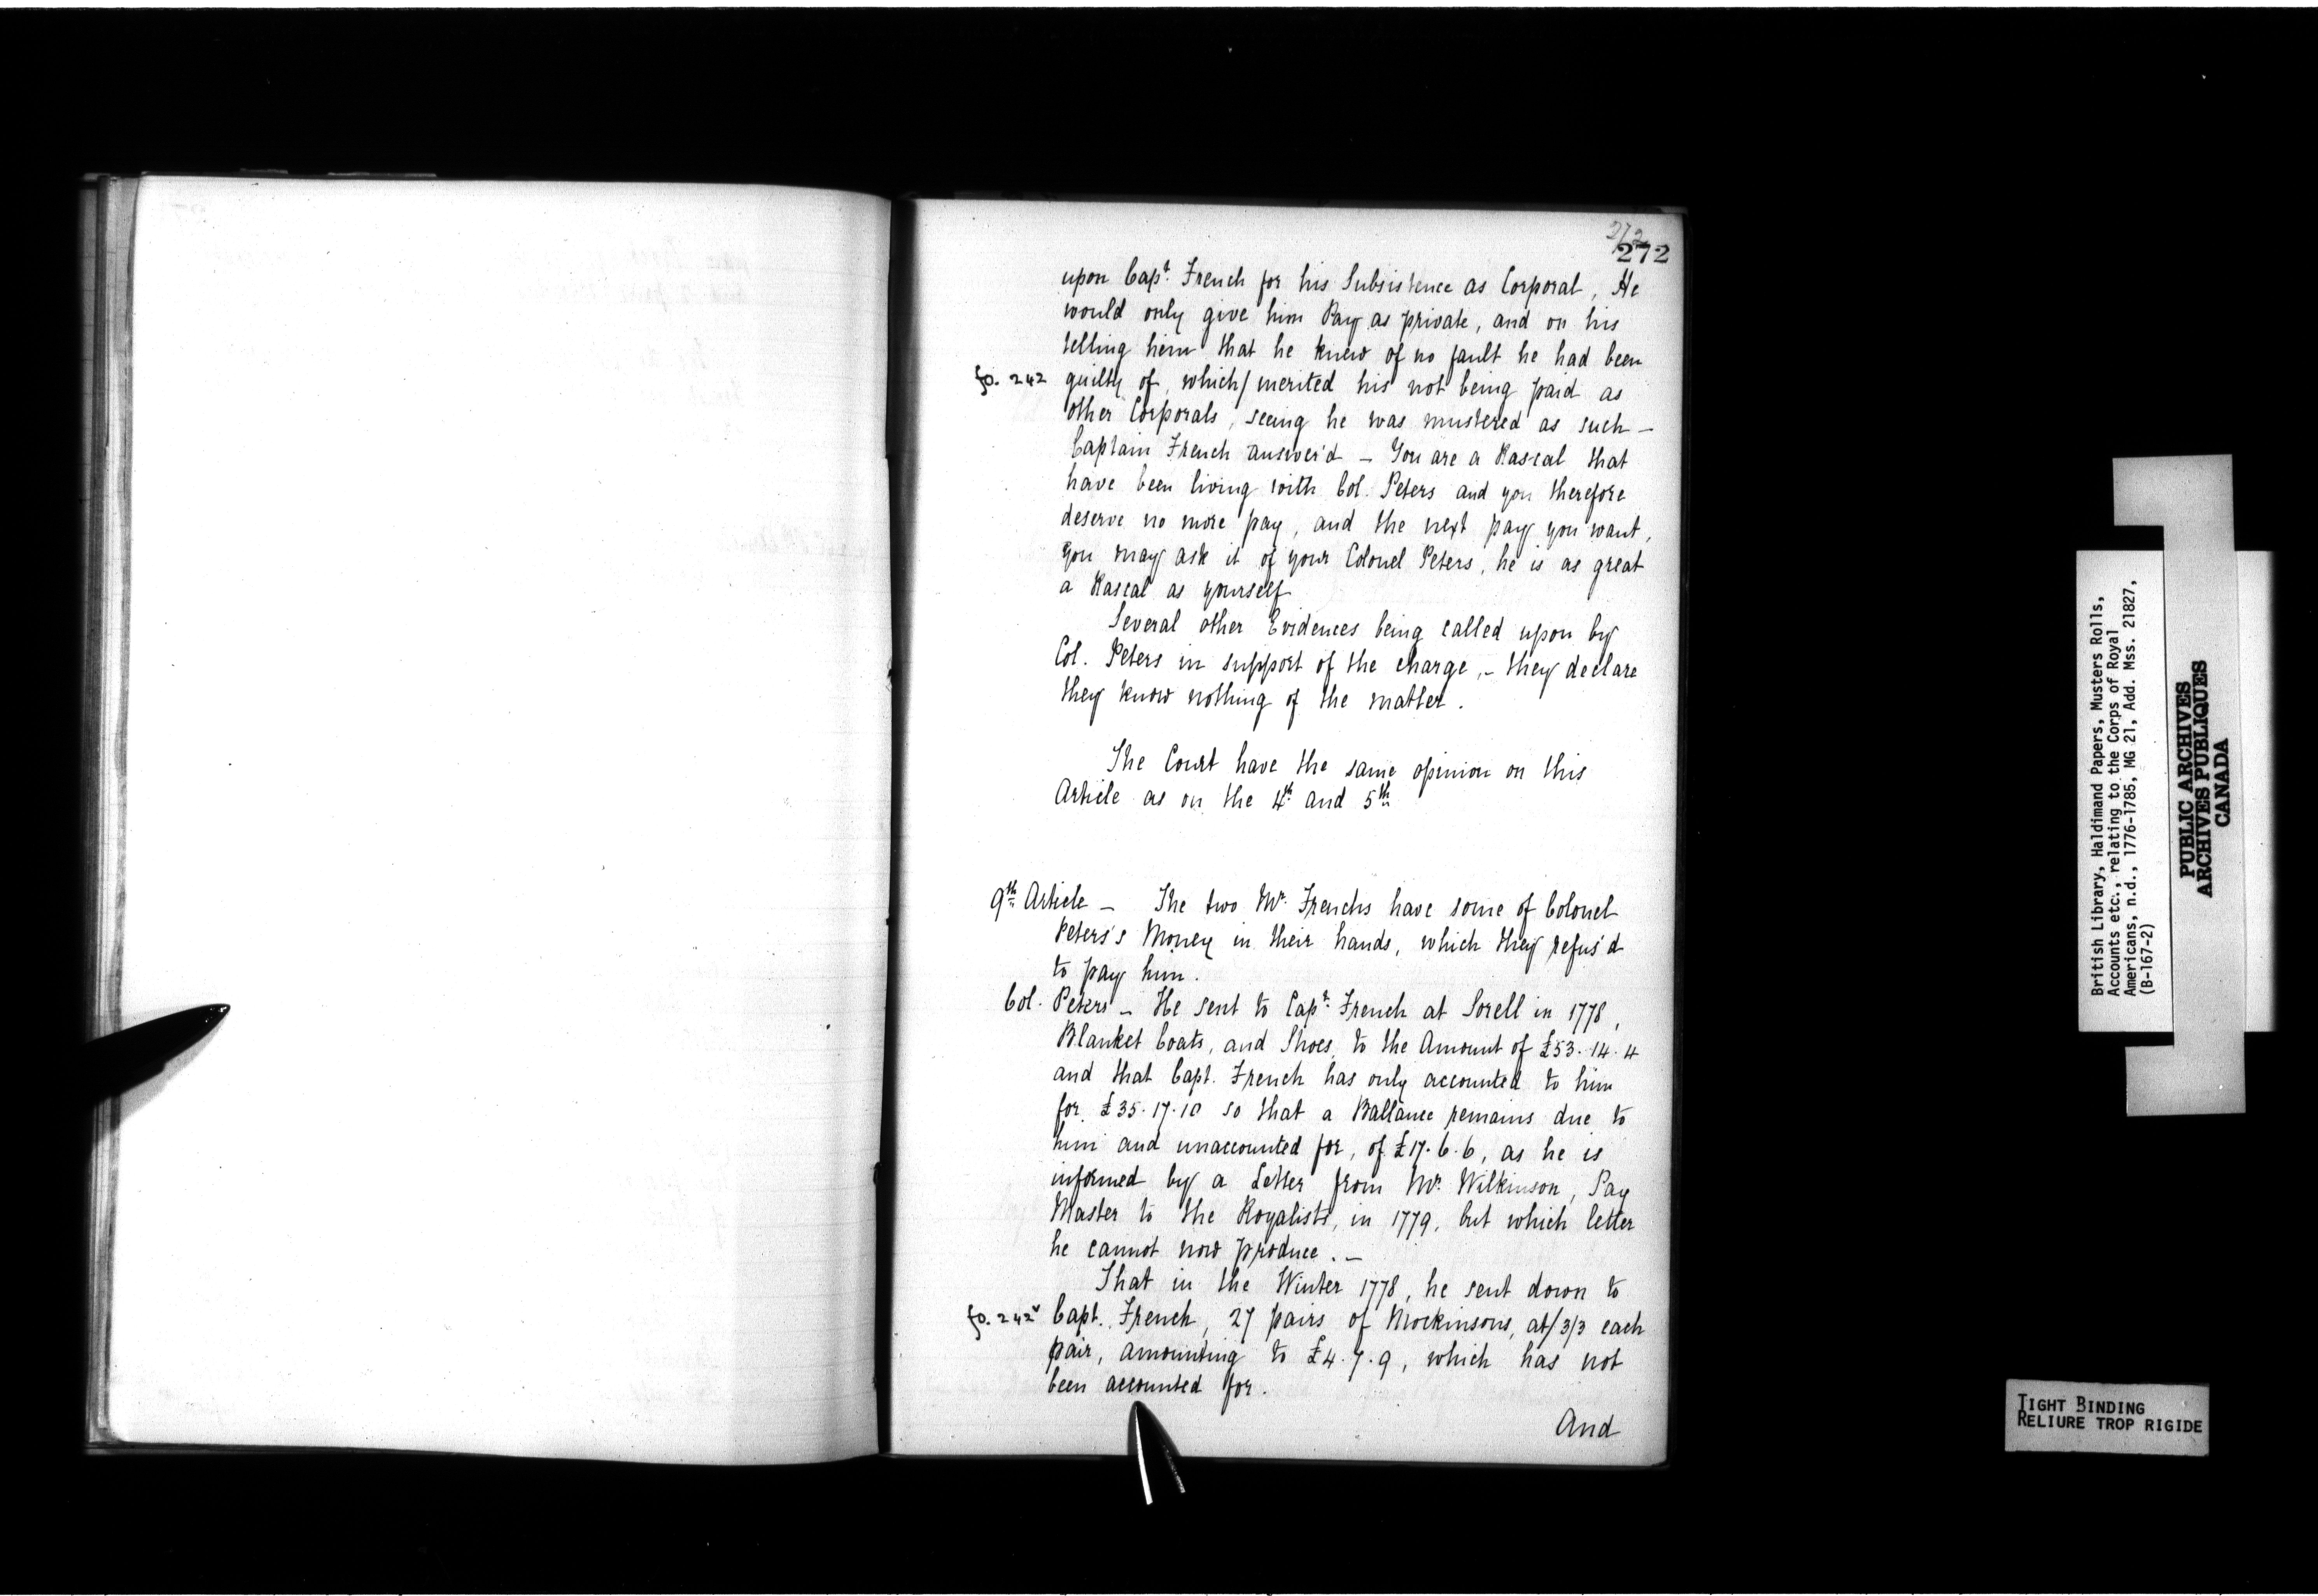 272
272
upon Capt. French for his Subsistence as Corporal, He
would only give him Pay as private, and on his
telling him that he knew of no fault he had been
fo. 242 guilty of, which/merited his not being paid as
other Corporals, seeing he was mustered as such —
Captain French answer'd — You are a Rascal that
have been living with Col. Peters and you therefore
deserve no more pay, and the next pay you want,
you may ask it of your Colonel Peters, he is as great
a Rascal as yourself
Several other Evidences being called upon by
Col. Peters in support of the charge, - they declare
they know nothing of the matter.
The Court have the same opinion on this
Article as on the 4th and 5th
9th Article — The two Mr. Frenchs have some of Colonel
Peters's Money in their hands, which they refus'd
to pay him.
Col. Peters — He sent to Capt. French at Sorell in 1778,
Blanket Coats, and Shoes, to the Amount of £53.14.4
and that Capt. French has only accounted to him
for £35.17.10 so that a Ballance remains due to
him and unaccounted for, of £17.6.6, as he is
informed by a Letter from Mr. Wilkinson, Pay
Master to the Royalists, in 1779, but which letter
he cannot now produce. —
That in the Winter 1778, he sent down to
fo. 242v Capt. French, 27 pairs of Mockinsons, at/3/3 each
pair, amounting to £4.7.9, which has not
been accounted for.
And
British Library, Haldimand Papers, Musters Rolls,
Accounts etc., relating to the Corps of Royal
Americans, n.d., 1776-1785, MG 21, Add. Mss. 21827,
(B-167-2)
PUBLIC ARCHIVES
ARCHIVES PUBLIQUES
CANADA
TIGHT BINDING
RELIURE TROP RIGIDE